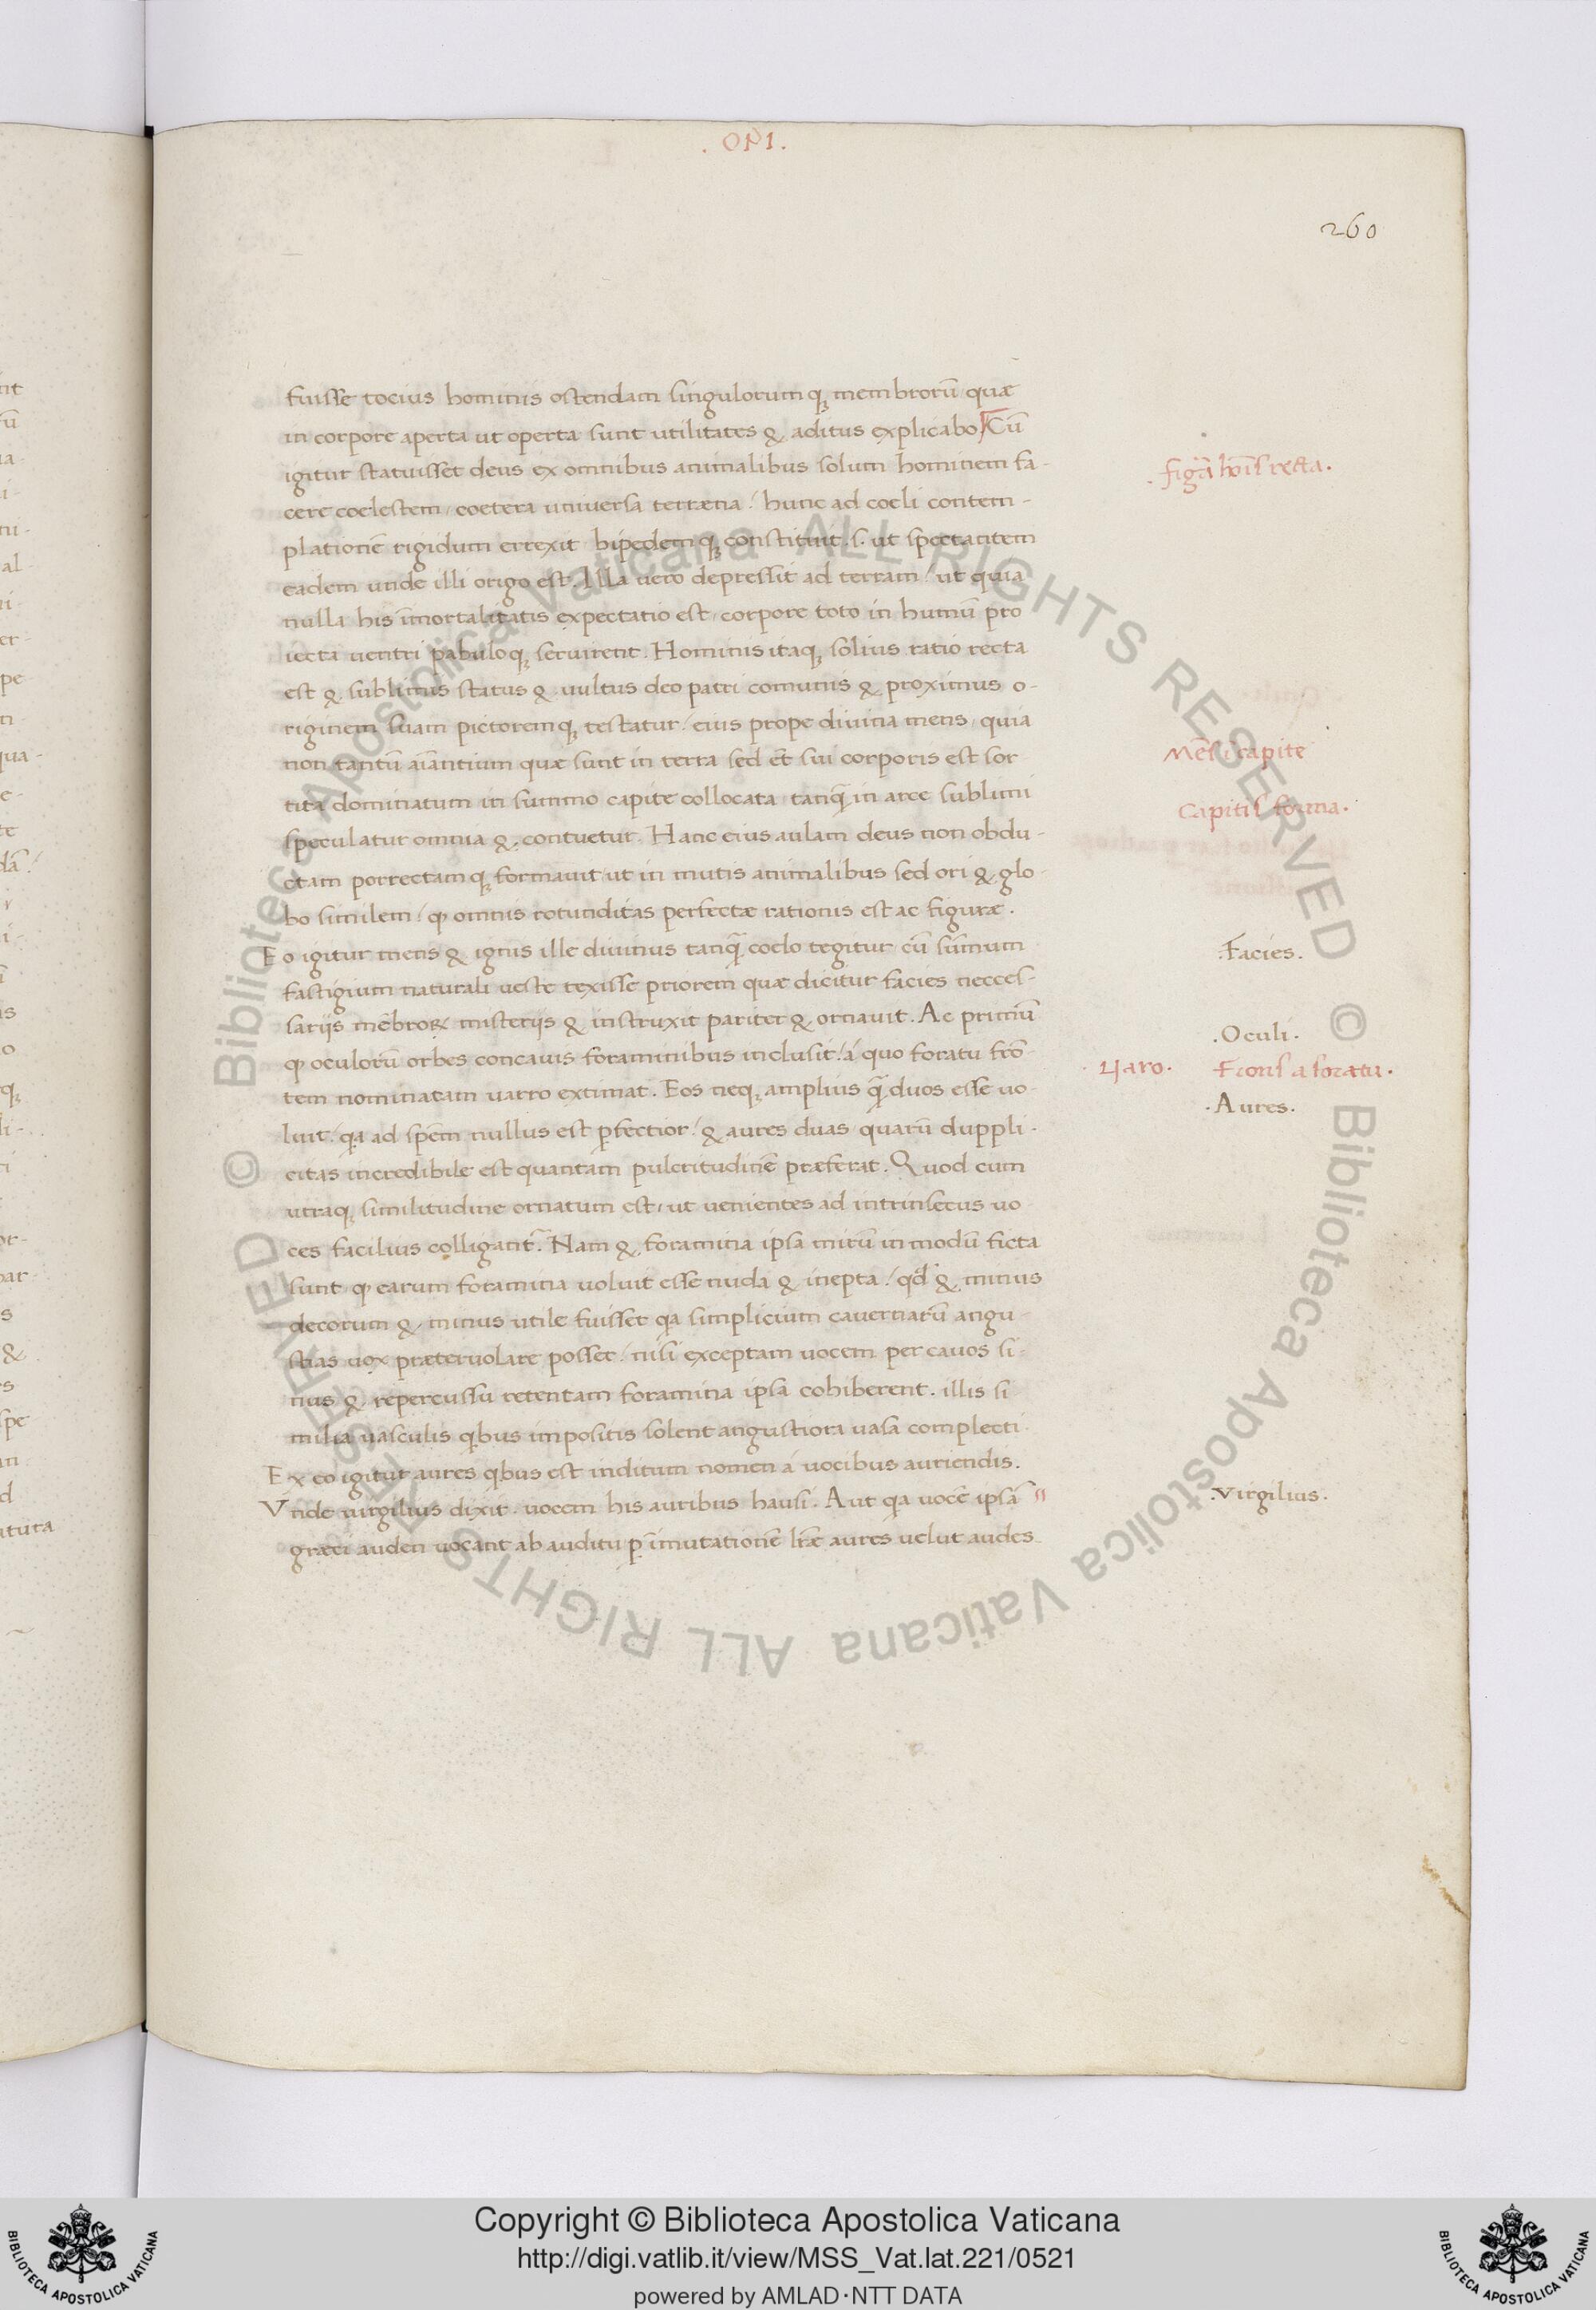 . OPI .
260
fuisse tocius hominis ostendam singulorumq; membrorū quæ
in corpore aperta ut operta sunt utilitates & aditus explicabo Cū
igitur statuisset deus ex omnibus animalibus solum hominem fa-
cere coelestem / coetera universa terræna / hunc ad coeli contem-
plationē rigidum errexit bipedemq; constituit .s. ut spectantem
eadem unde illi origo est. Illa uero depressit ad terram / ut quia
nulla his īmortalitatis expectatio est / corpore toto in humū pro
iecta uentri pabuloq; seruirent. Hominis itaq; solius ratio recta
est & sublimis status & uultus deo patri comunis & proximus o-
riginem suam pictoremq; testatur / eius prope diuina mens / quia
non tantū aīantium quæ sunt in terra sed et̄ sui corporis est sor
tita dominatum in summo capite collocata tanq̄ in arce sublimi
speculatur omnia & contuetur. Hanc eius aulam deus non obdu-
ctam porrectamq; formauit ut in mutis animalibus sed ori & glo-
bo similem / qꝫ omnis rotunditas perfectæ rationis est ac figuræ.
Eo igitur mens & ignis ille diuinus tanq̄ coelo tegitur cū sūmum
fastigium naturali ueste texisse priorem quæ dicitur facies necces-
sarijs mēbroꝝ misterijs & instruxit pariter & ornauit. Ac primū
qꝫ oculorū orbes concauis foraminibus inclusit / á quo foratu frō-
tem nominatam uarro extimat. Eos neq; amplius q̄ duos esse uo-
luit / qa ad spēm nullus est ꝑfectior / & aures duas quarū duppli-
citas incredibile est quantam pulcritudinē præferat. Quod cum
utraq; similitudine ornatum est / ut uenientes ad intrinsecus uo
ces facilius colligant̃. Nam & foramina ipsa mirū in modū ficta
sunt qꝫ earum foramina uoluit esse nuda & inepta / qd̄ & minus
decorum & minus utile fuisset qa simplicium cauernarū angu-
stias uox præteruolare posset / nisi exceptam uocem per cauos si-
nus & repercussu retentam foramina ipsa cohiberent. illis si
milia uasculis qbus impositis solent angustiora uasa complecti
Ex eo igitur aures qbus est inditum nomen á uocibus auriendis.
Vnde uirgilius dixit. uocem his auribus hausi. Aut qa uocē ipsā
græci auden uocant ab auditu ꝑ īmutationē lr̄æ aures uelut audes
. figā hoīs recta.
Mēs ī capite
Capitis forma.
.Facies.
.Oculi.
. Varo.
Frons a foratu.
.Aures.
.Virgilius.
© Biblioteca Apostolica Vaticana ALL RIGHTS RESERVED © Biblioteca Apostolica Vaticana ALL RIGHTS RESERVED
Copyright © Biblioteca Apostolica Vaticana
http://digi.vatlib.it/view/MSS_Vat.lat.221/0521
powered by AMLAD·NTT DATA
BIBLIOTECA APOSTOLICA VATICANA
BIBLIOTECA APOSTOLICA VATICANA